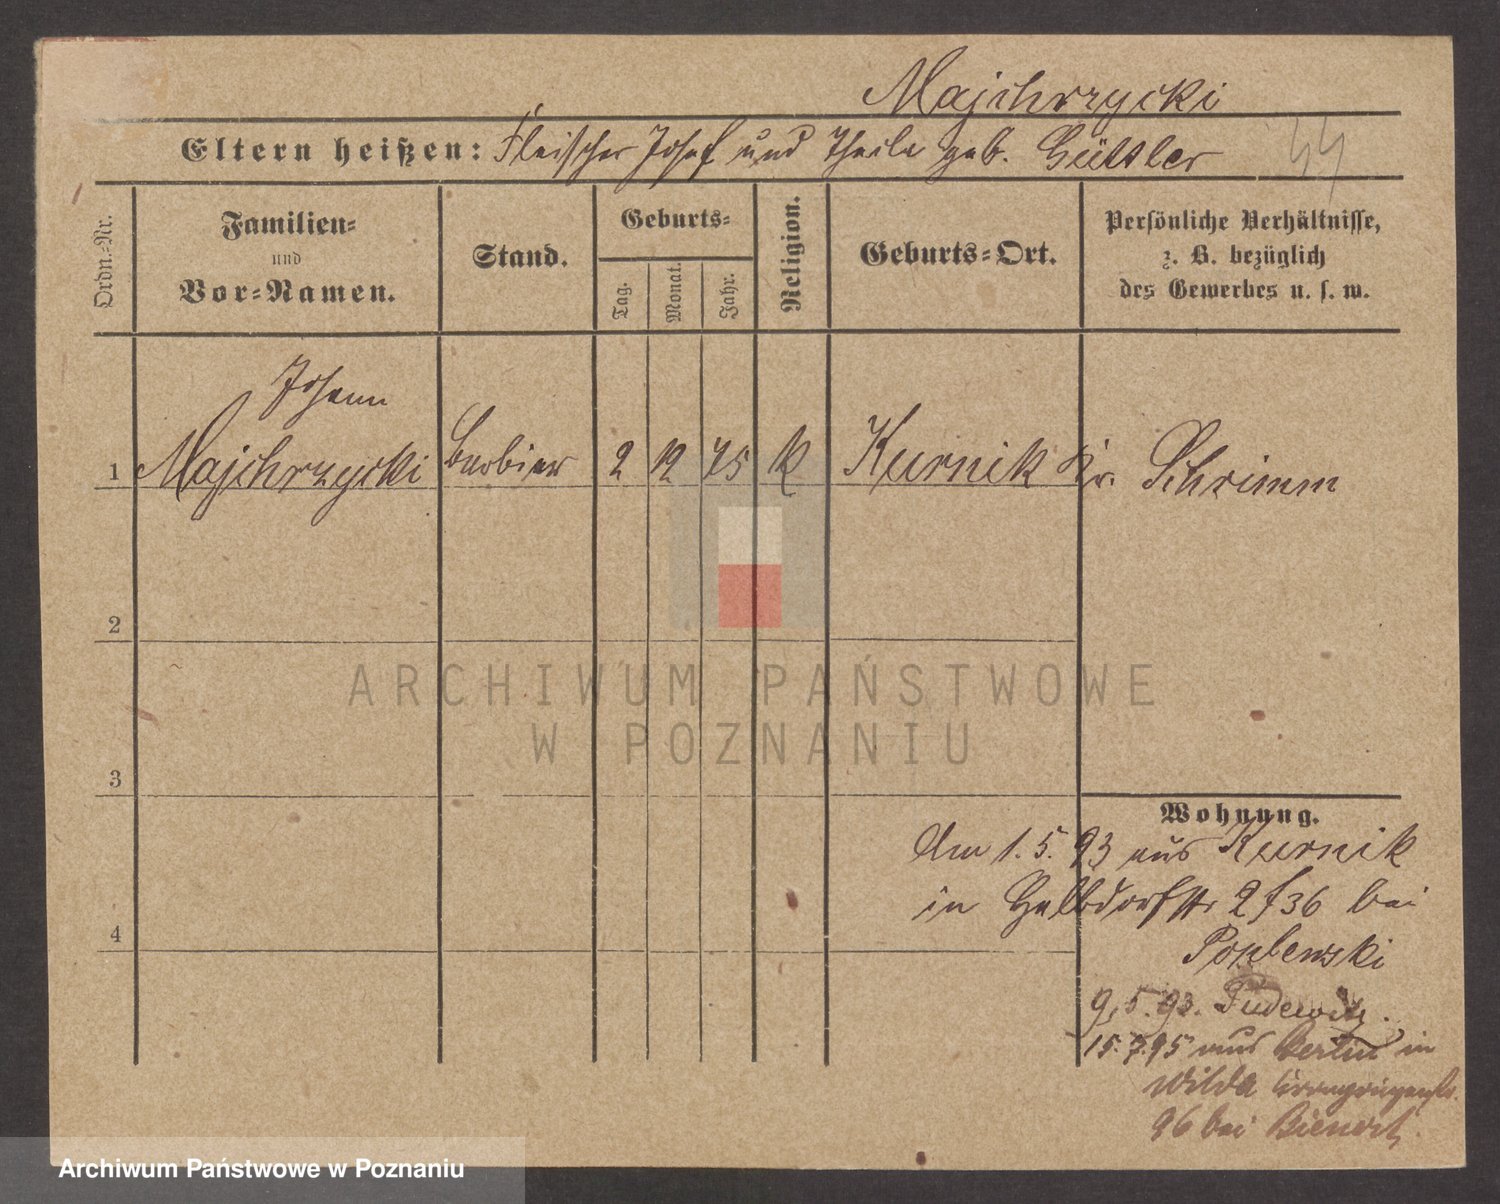 Majchrzycki
Eltern heißen: Fleischer Josef und Thecla geb. Güttler
44
Ordn.-Nr.
Familien-
und
Vor-Namen.
Stand.
Geburts-
Tag.
Monat.
Jahr.
Religion.
Geburts-Ort.
Persönliche Verhältnisse,
z. B. bezüglich
des Gewerbes u. s. w.
Johann
1 Majchrzycki Barbier 2 12 75 k Kurnik Kr. Schrimm
2
3
4
Wohnung.
Am 1. 5. 93 aus Kurnik
in Halbdorfstr 36 bei
Poplewski
9. 5. 93. Pudewitz.
15. 7. 95 aus Berlin in
Wilda Kronprinzenstr.
96 bei Bienert.
ARCHIWUM PAŃSTWOWE
W POZNANIU
Archiwum Państwowe w Poznaniu